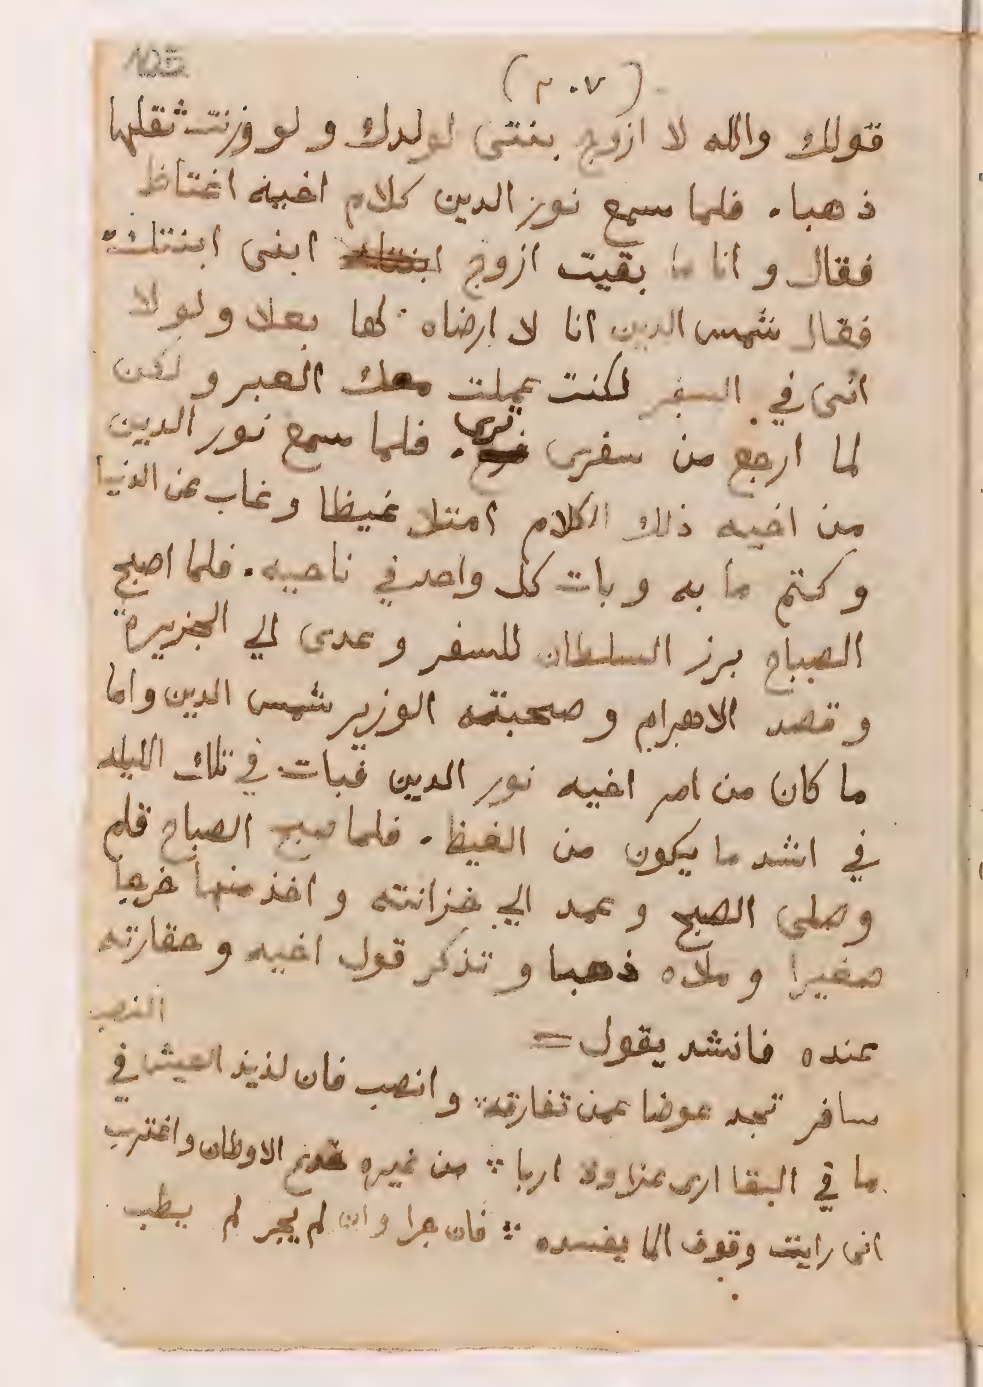 (٢٠٧)
قولك والله لا ازوج بنتى لولدك و لو وزنت ثقلها
ذهبا. فلما سمع نور الدين كلام اخيه اغتاظ
فقال و انا ما بقيت ازوج ابنى ابنتك
فقال شمس الدين انا لا ارضاه لها بعلا و لولا
انى في السفر لكنت عملت معك العبر و لكن
لما ارجع من سفرى ترى. فلما سمع نور الدين
من اخيه ذلك الكلام امتلا غيظا و غاب عن الدنيا
و كتم ما به و بات كل واحد في ناحيه. فلما اصبح
الصباح برز السلطان للسفر و عدى الي الجزيرة
و قصد الاهرام و صحبته الوزير شمس الدين واما
ما كان من امر اخيه نور الدين فبات في تلك الليله
في اشد ما يكون من الغيظ. فلما صبح الصباح قام
و صلى الصبح و عمد الي خزانته و اخذ منها خرجا
صغيرا و ملاه ذهبا و تذكر قول اخيه و حقارته
عنده فانشد يقول =
النصب
سافر تجد عوضا عمن تفارقه و انصب فان لذيذ العيش في
ما في البقا ارى عزا ولا اربا من غيره فدع الاوطان واغترب
انى رايت وقوف الما يفسده فان جرا وان لم يجر لم يطب